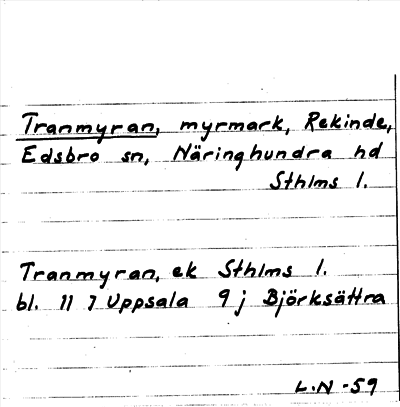 Tranmyran, myrmark, Rekinde,
Edsbro sn, Näringhundra hd
Sthlms l.
Tranmyran, ek Sthlms l.
bl. 11 I Uppsala 9 j Björksättra
L.N -59